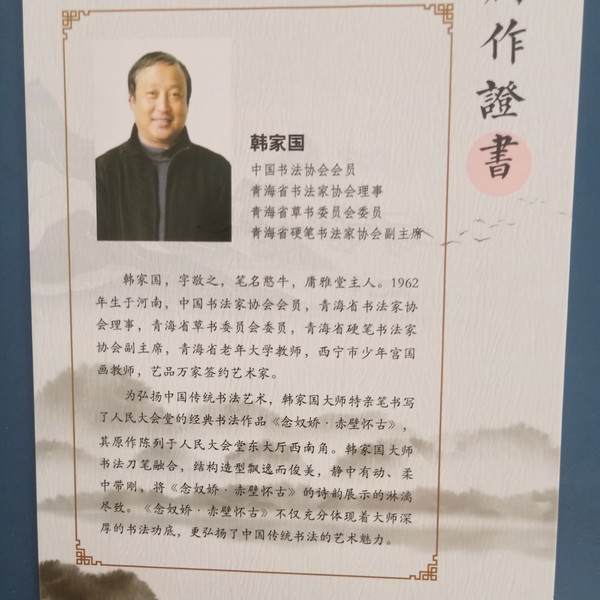 作證書
韩家国
中国书法协会会员
青海省书法家协会理事
青海省草书委员会委员
青海省硬笔书法家协会副主席
韩家国，字敬之，笔名憨牛，庸雅堂主人。1962
年生于河南，中国书法家协会会员，青海省书法家协
会理事，青海省草书委员会委员，青海省硬笔书法家
协会副主席，青海省老年大学教师，西宁市少年宫国
画教师，艺品万家签约艺术家。
为弘扬中国传统书法艺术，韩家国大师特亲笔书写
了人民大会堂的经典书法作品《念奴娇·赤壁怀古》，
其原作陈列于人民大会堂东大厅西南角。韩家国大师
书法刀笔融合，结构造型飘逸而俊美，静中有动、柔
中带刚，将《念奴娇·赤壁怀古》的诗韵展示的淋漓
尽致。《念奴娇·赤壁怀古》不仅充分体现着大师深
厚的书法功底，更弘扬了中国传统书法的艺术魅力。